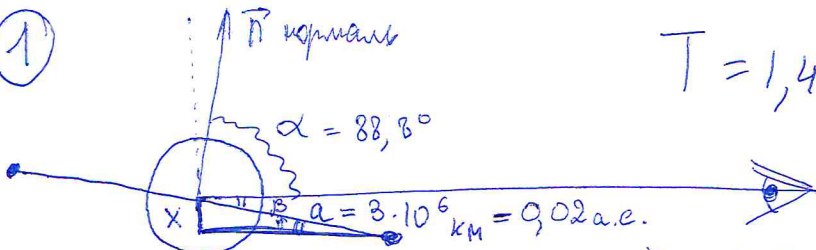 1
n⃗ нормаль
T = 1,4
α = 88,8°
x β a = 3·10⁶ км = 0,02 а.е.